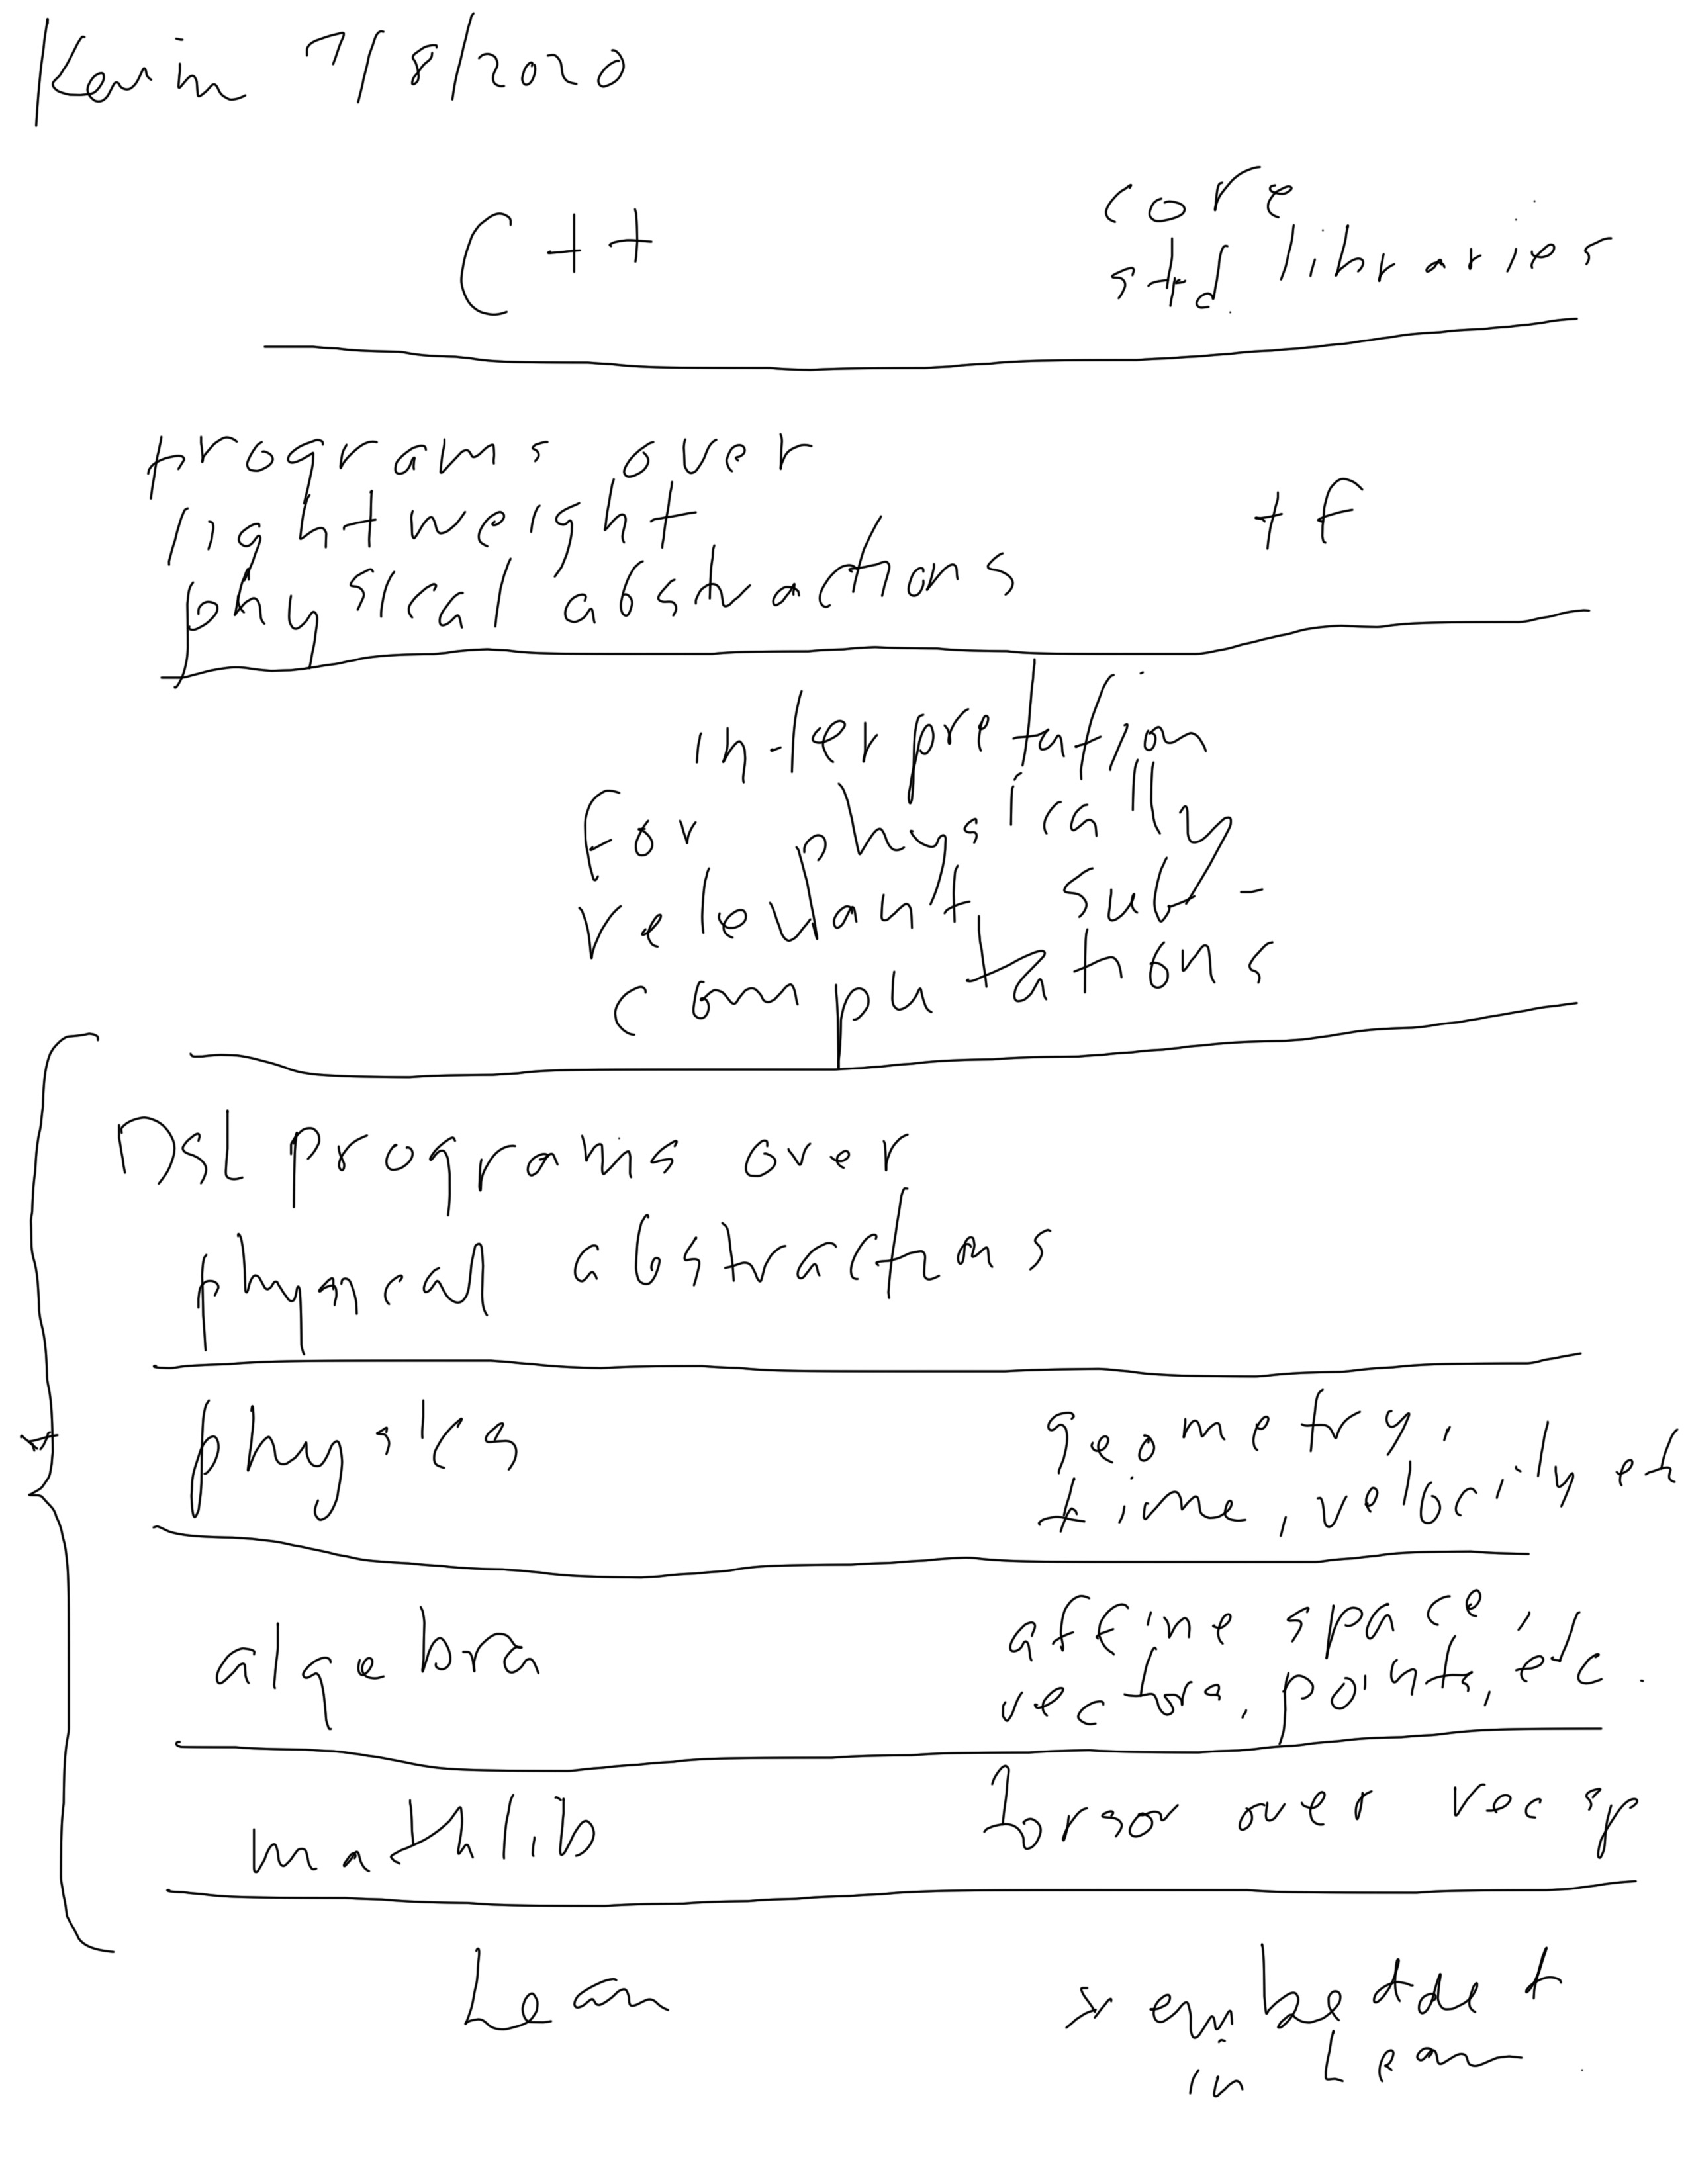 Kevin 7/8/2020
C++
core
std libraries
programs over
lightweight
physical abstractions
tf
interpretation
for physically
relevant sub-
computations
DSL programs over
physical abstractions
physics
geometry,
time, velocity, etc
algebra
affine space,
vectors, points, etc.
mathlib
torsor over vec sp
Lean
* embedded
in Lean